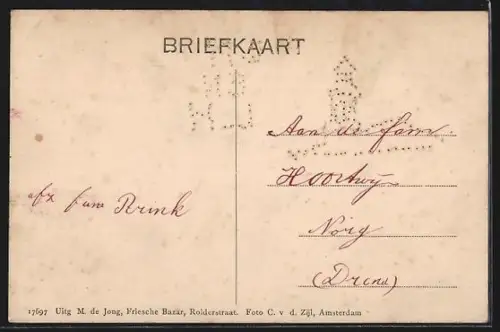 BRIEFKAART
Aan de fam.
Hoortwy
Norg
(Drent)
afz fam Brink
17697 Uitg M. de Jong, Friesche Bazar, Rolderstraat. Foto C. v d. Zijl, Amsterdam